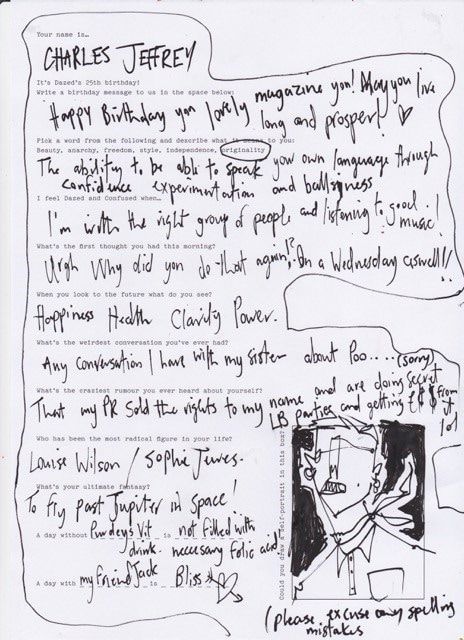 Your name is…
CHARLES JEFFREY
It's Dazed's 25th birthday!
Write a birthday message to us in the space below:
Happy Birthday you lovely magazine you! May you live
long and prosper! ♡
Pick a word from the following and describe what it means to you:
Beauty, anarchy, freedom, style, independence, originality
The ability to be able to speak your own language through
confidence experimentation and ballsyness
I feel Dazed and Confused when…
I'm with the right group of people and listening to good music!
What's the first thought you had this morning?
Urgh Why did you do that again!? On a Wednesday aswell!!
When you look to the future what do you see?
Happiness Health Clarity Power.
What's the weirdest conversation you've ever had?
Any conversation I have with my sister about Poo.... (sorry)
What's the craziest rumour you ever heard about yourself?
That my PR sold the rights to my name and are doing secret
LB parties and getting £$$ from it lol
Who has been the most radical figure in your life?
Louise Wilson / Sophie Jewes.
What's your ultimate fantasy?
To fly past Jupiter in Space!
A day without Purdeys Vit drink is not filled with
necessary folic acid
A day with my friend Jack is Bliss ♡
Could you draw a self-portrait in this box?
(please excuse any spelling
mistakes